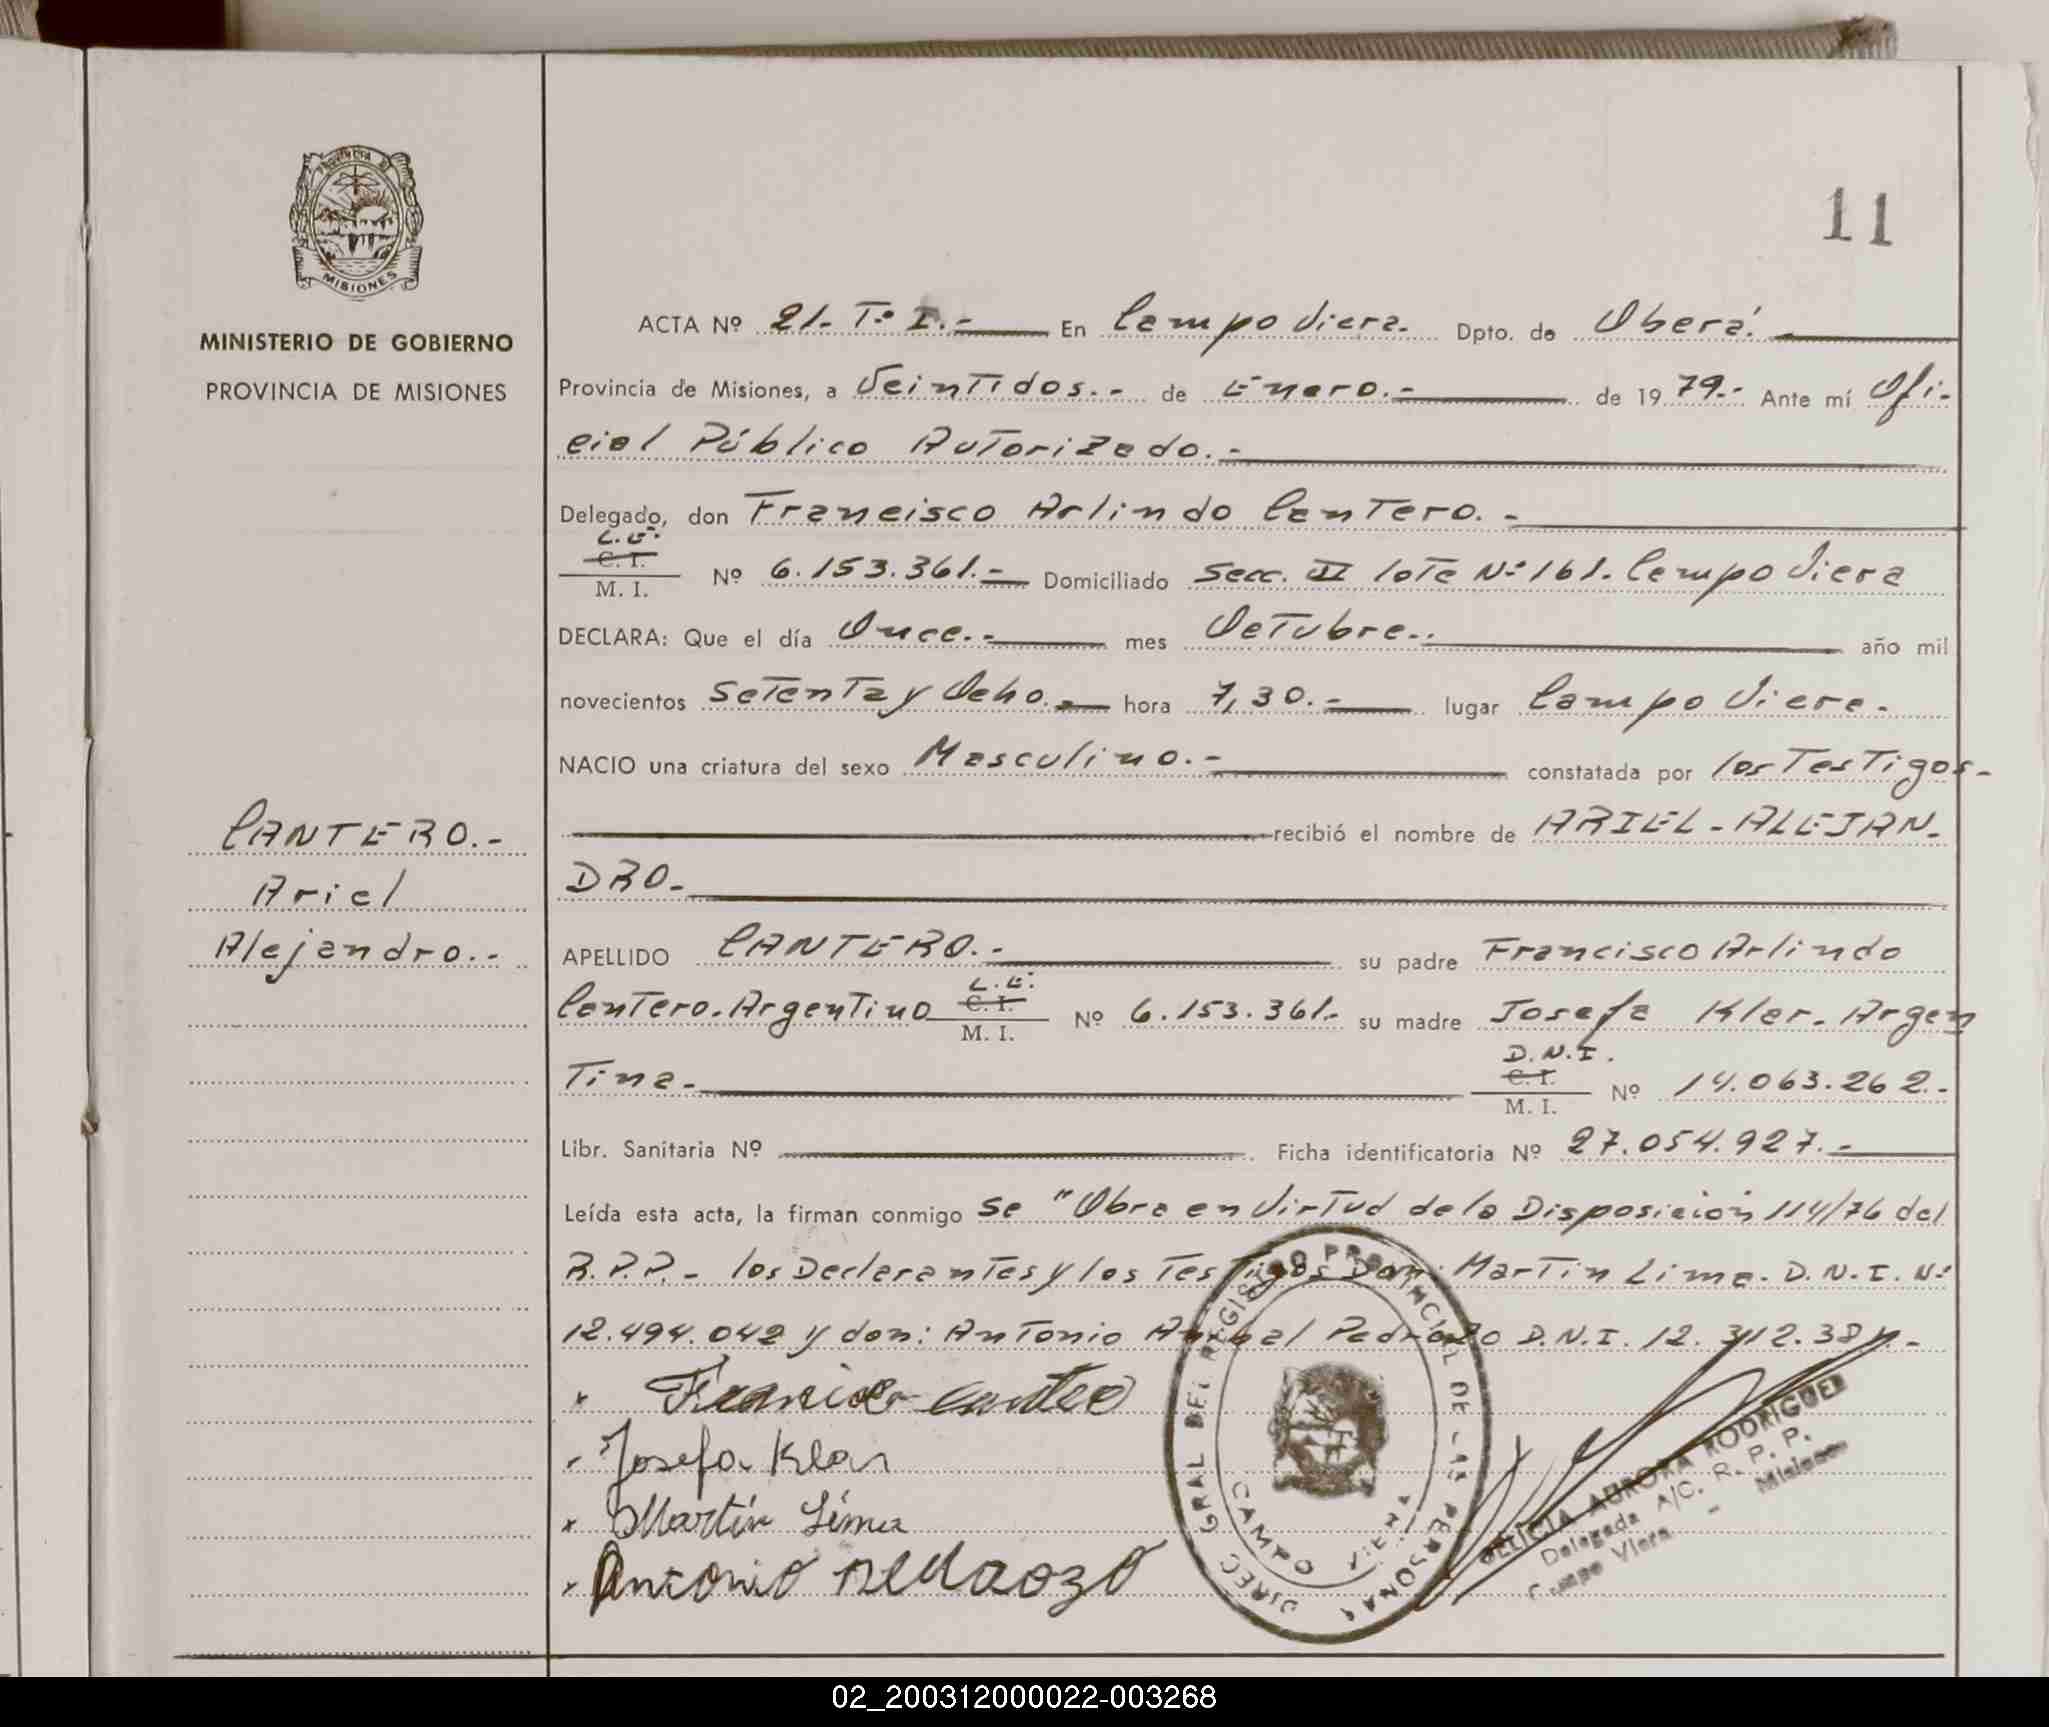 11
PROVINCIA DE
MISIONES
MINISTERIO DE GOBIERNO
PROVINCIA DE MISIONES
ACTA Nº 21.- Tº I.- En Campo Viera.- Dpto. de Oberá.-
Provincia de Misiones, a Veintidos.- de Enero.- de 1979.- Ante mí Ofi-
cial Público Autorizado.-
Delegado, don Francisco Arlindo Cantero.-
L.E.
C. I.
M. I. Nº 6.153.361.- Domiciliado Secc. II lote Nº 161. Campo Viera
DECLARA: Que el día Once.- mes Octubre.- año mil
novecientos Setenta y Ocho.- hora 7,30.- lugar Campo Viera.
NACIO una criatura del sexo Masculino.- constatada por los Testigos-
recibió el nombre de ARIEL-ALEJAN-
DRO-
CANTERO.-
Ariel
Alejandro.-
APELLIDO CANTERO.- su padre Francisco Arlindo
L.E.
Cantero. Argentino C. I.
M. I. Nº 6.153.361.- su madre Josefa Klar. Argen
D.N.I.
tina.- C. I.
M. I. Nº 14.063.262.-
Libr. Sanitaria Nº Ficha identificatoria Nº 27.054.927.-
Leída esta acta, la firman conmigo se "Obra en Virtud de la Disposición 114/76 del
R.P.P.- los Declarantes y los Testigos Don: Martin Lima. D.N.I. Nº
12.494.042 y don: Antonio Pedrozo D.N.I. 12.312.38
Francisco Cantero
Josefa Klar
Martín Lima
Antonio Pedrozo
DIREC. GRAL DEL REGISTRO PROVINCIAL DE LAS PERSONAS
CAMPO VIERA
DELICIA AURORA RODRIGUEZ
Delegada A/C. R. P. P.
Campo Viera - Misiones
02_200312000022-003268